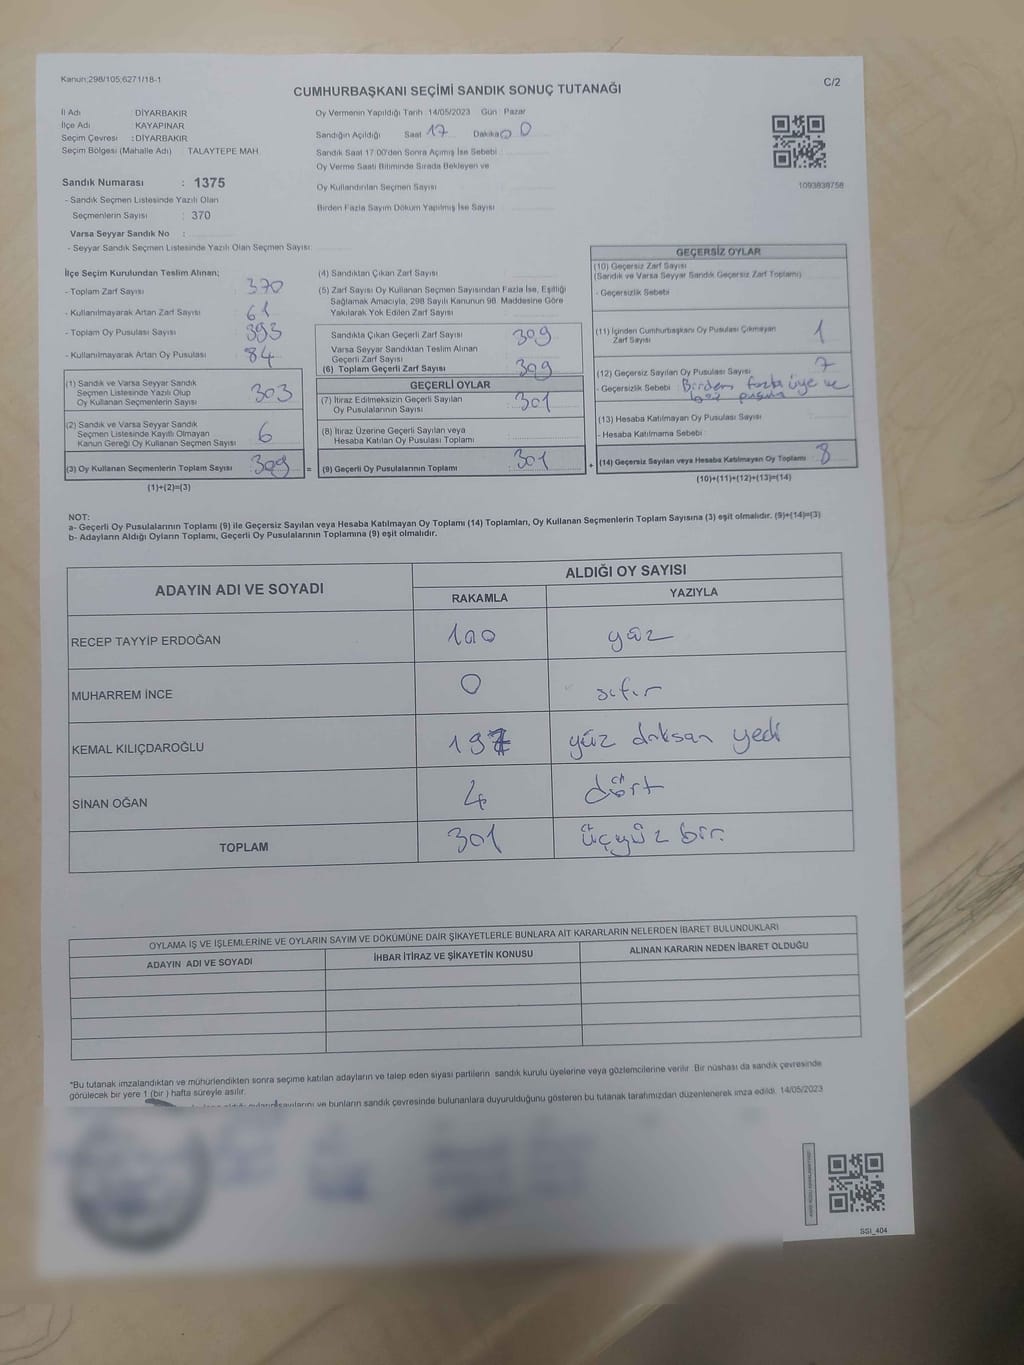 Kanun:298/105;6271/18-1
CUMHURBAŞKANI SEÇİMİ SANDIK SONUÇ TUTANAĞI
C/2
İl Adı DİYARBAKIR
İlçe Adı KAYAPINAR
Seçim Çevresi : DİYARBAKIR
Seçim Bölgesi (Mahalle Adı) TALAYTEPE MAH.
Oy Vermenin Yapıldığı Tarih 14/05/2023 Gün : Pazar
Sandığın Açıldığı Saat 17 Dakika 00
Sandık Saat 17:00'den Sonra Açılmış İse Sebebi
Oy Verme Saati Bitiminde Sırada Bekleyen ve
Oy Kullandırılan Seçmen Sayısı
Birden Fazla Sayım Döküm Yapılmış İse Sayısı
1093838758
Sandık Numarası : 1375
- Sandık Seçmen Listesinde Yazılı Olan
Seçmenlerin Sayısı : 370
Varsa Seyyar Sandık No :
- Seyyar Sandık Seçmen Listesinde Yazılı Olan Seçmen Sayısı:
İlçe Seçim Kurulundan Teslim Alınan;
- Toplam Zarf Sayısı 370
- Kullanılmayarak Artan Zarf Sayısı 61
- Toplam Oy Pusulası Sayısı 393
- Kullanılmayarak Artan Oy Pusulası 84
(1) Sandık ve Varsa Seyyar Sandık
Seçmen Listesinde Yazılı Olup
Oy Kullanan Seçmenlerin Sayısı 303
(2) Sandık ve Varsa Seyyar Sandık
Seçmen Listesinde Kayıtlı Olmayan
Kanun Gereği Oy Kullanan Seçmen Sayısı 6
(3) Oy Kullanan Seçmenlerin Toplam Sayısı 309 =
(1)+(2)=(3)
(4) Sandıktan Çıkan Zarf Sayısı
(5) Zarf Sayısı Oy Kullanan Seçmen Sayısından Fazla İse, Eşitliği
Sağlamak Amacıyla, 298 Sayılı Kanunun 98. Maddesine Göre
Yakılarak Yok Edilen Zarf Sayısı
Sandıkta Çıkan Geçerli Zarf Sayısı 309
Varsa Seyyar Sandıktan Teslim Alınan
Geçerli Zarf Sayısı
(6) Toplam Geçerli Zarf Sayısı 309
GEÇERLİ OYLAR
(7) İtiraz Edilmeksizin Geçerli Sayılan
Oy Pusulalarının Sayısı 301
(8) İtiraz Üzerine Geçerli Sayılan veya
Hesaba Katılan Oy Pusulası Toplamı
(9) Geçerli Oy Pusulalarının Toplamı 301 +
GEÇERSİZ OYLAR
(10) Geçersiz Zarf Sayısı
(Sandık ve Varsa Seyyar Sandık Geçersiz Zarf Toplamı)
- Geçersizlik Sebebi
(11) İçinden Cumhurbaşkanı Oy Pusulası Çıkmayan
Zarf Sayısı 1
(12) Geçersiz Sayılan Oy Pusulası Sayısı 7
- Geçersizlik Sebebi Birden fazla üye ve
boş pusula
(13) Hesaba Katılmayan Oy Pusulası Sayısı
- Hesaba Katılmama Sebebi
(14) Geçersiz Sayılan veya Hesaba Katılmayan Oy Toplamı 8
(10)+(11)+(12)+(13)=(14)
NOT:
a- Geçerli Oy Pusulalarının Toplamı (9) ile Geçersiz Sayılan veya Hesaba Katılmayan Oy Toplamı (14) Toplamları, Oy Kullanan Seçmenlerin Toplam Sayısına (3) eşit olmalıdır. (9)+(14)=(3)
b- Adayların Aldığı Oyların Toplamı, Geçerli Oy Pusulalarının Toplamına (9) eşit olmalıdır.
ADAYIN ADI VE SOYADI ALDIĞI OY SAYISI
RAKAMLA YAZIYLA
RECEP TAYYİP ERDOĞAN 100 yüz
MUHARREM İNCE 0 sıfır
KEMAL KILIÇDAROĞLU 197 yüz doksan yedi
SİNAN OĞAN 4 dört
TOPLAM 301 üçyüz bir
OYLAMA İŞ VE İŞLEMLERİNE VE OYLARIN SAYIM VE DÖKÜMÜNE DAİR ŞİKAYETLERLE BUNLARA AİT KARARLARIN NELERDEN İBARET BULUNDUKLARI
ADAYIN ADI VE SOYADI İHBAR İTİRAZ VE ŞİKAYETİN KONUSU ALINAN KARARIN NEDEN İBARET OLDUĞU
*Bu tutanak imzalandıktan ve mühürlendikten sonra seçime katılan adayların ve talep eden siyasi partilerin sandık kurulu üyelerine veya gözlemcilerine verilir. Bir nüshası da sandık çevresinde
görülecek bir yere 1 (bir) hafta süreyle asılır.
sayılarını ve bunların sandık çevresinde bulunanlara duyurulduğunu gösteren bu tutanak tarafımızdan düzenlenerek imza edildi. 14/05/2023
SSI_404